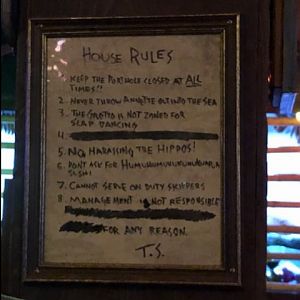 HOUSE RULES
1. KEEP THE PORTHOLE CLOSED AT ALL
TIMES!!
2. NEVER THROW ANNETTE OUT INTO THE SEA
3. THE GROTTO IS NOT ZONED FOR
SLAP DANCING
4.
5. NO HARASSING THE HIPPOS!
6. DONT ASK FOR
SUSHI
7. CANNOT SERVE ON DUTY SKIPPERS
8. MANAGEMENT IS NOT RESPONSIBLE
FOR ANY REASON.
T.S.